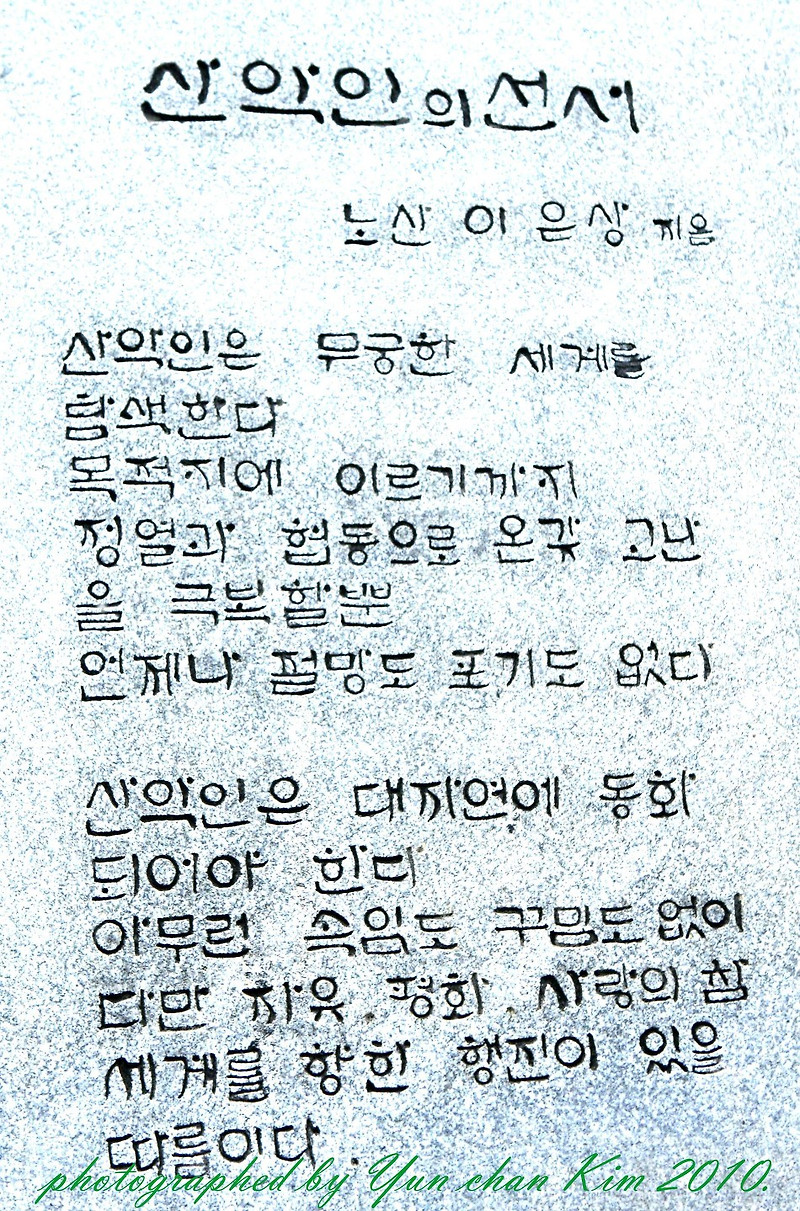 산악인의 선서
노산 이 은상 지음
산악인은 무궁한 세계를
탐색한다
목적지에 이르기까지
정열과 협동으로 온갖 고난
을 극복할뿐
언제나 절망도 포기도 없다
산악인은 대자연에 동화
되어야 한다
아무런 속임도 꾸밈도 없이
다만 자유. 평화. 사랑의 참
세계를 향한 행진이 있을
따름이다.
photographed by Yun chan Kim 2010.